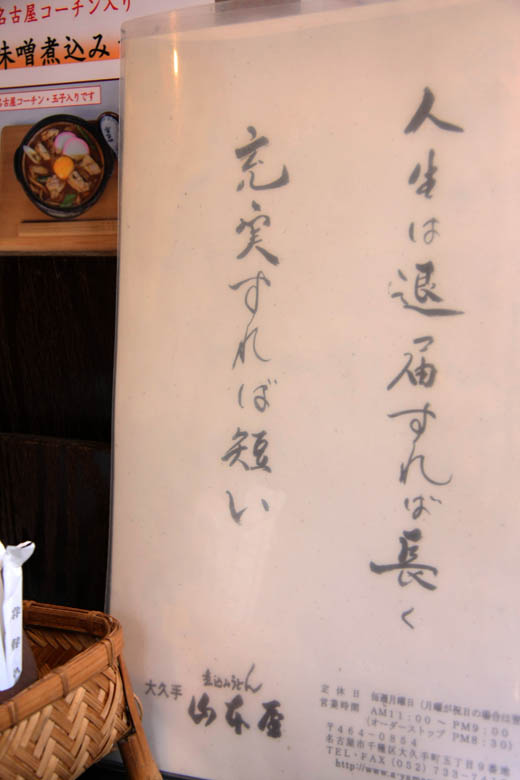 名古屋コーチン入り
味噌煮込み
名古屋コーチン・玉子入りです
人生は退屈すれば長く
充実すれば短い
大久手
煮込みうどん
山本屋
定休日 毎週月曜日(月曜が祝日の場合は
営業時間 AM11:00～PM9:00
(オーダーストップ PM8:30)
〒464-0854
名古屋市千種区大久手町五丁目9番地
TEL・FAX(052)
http://www.